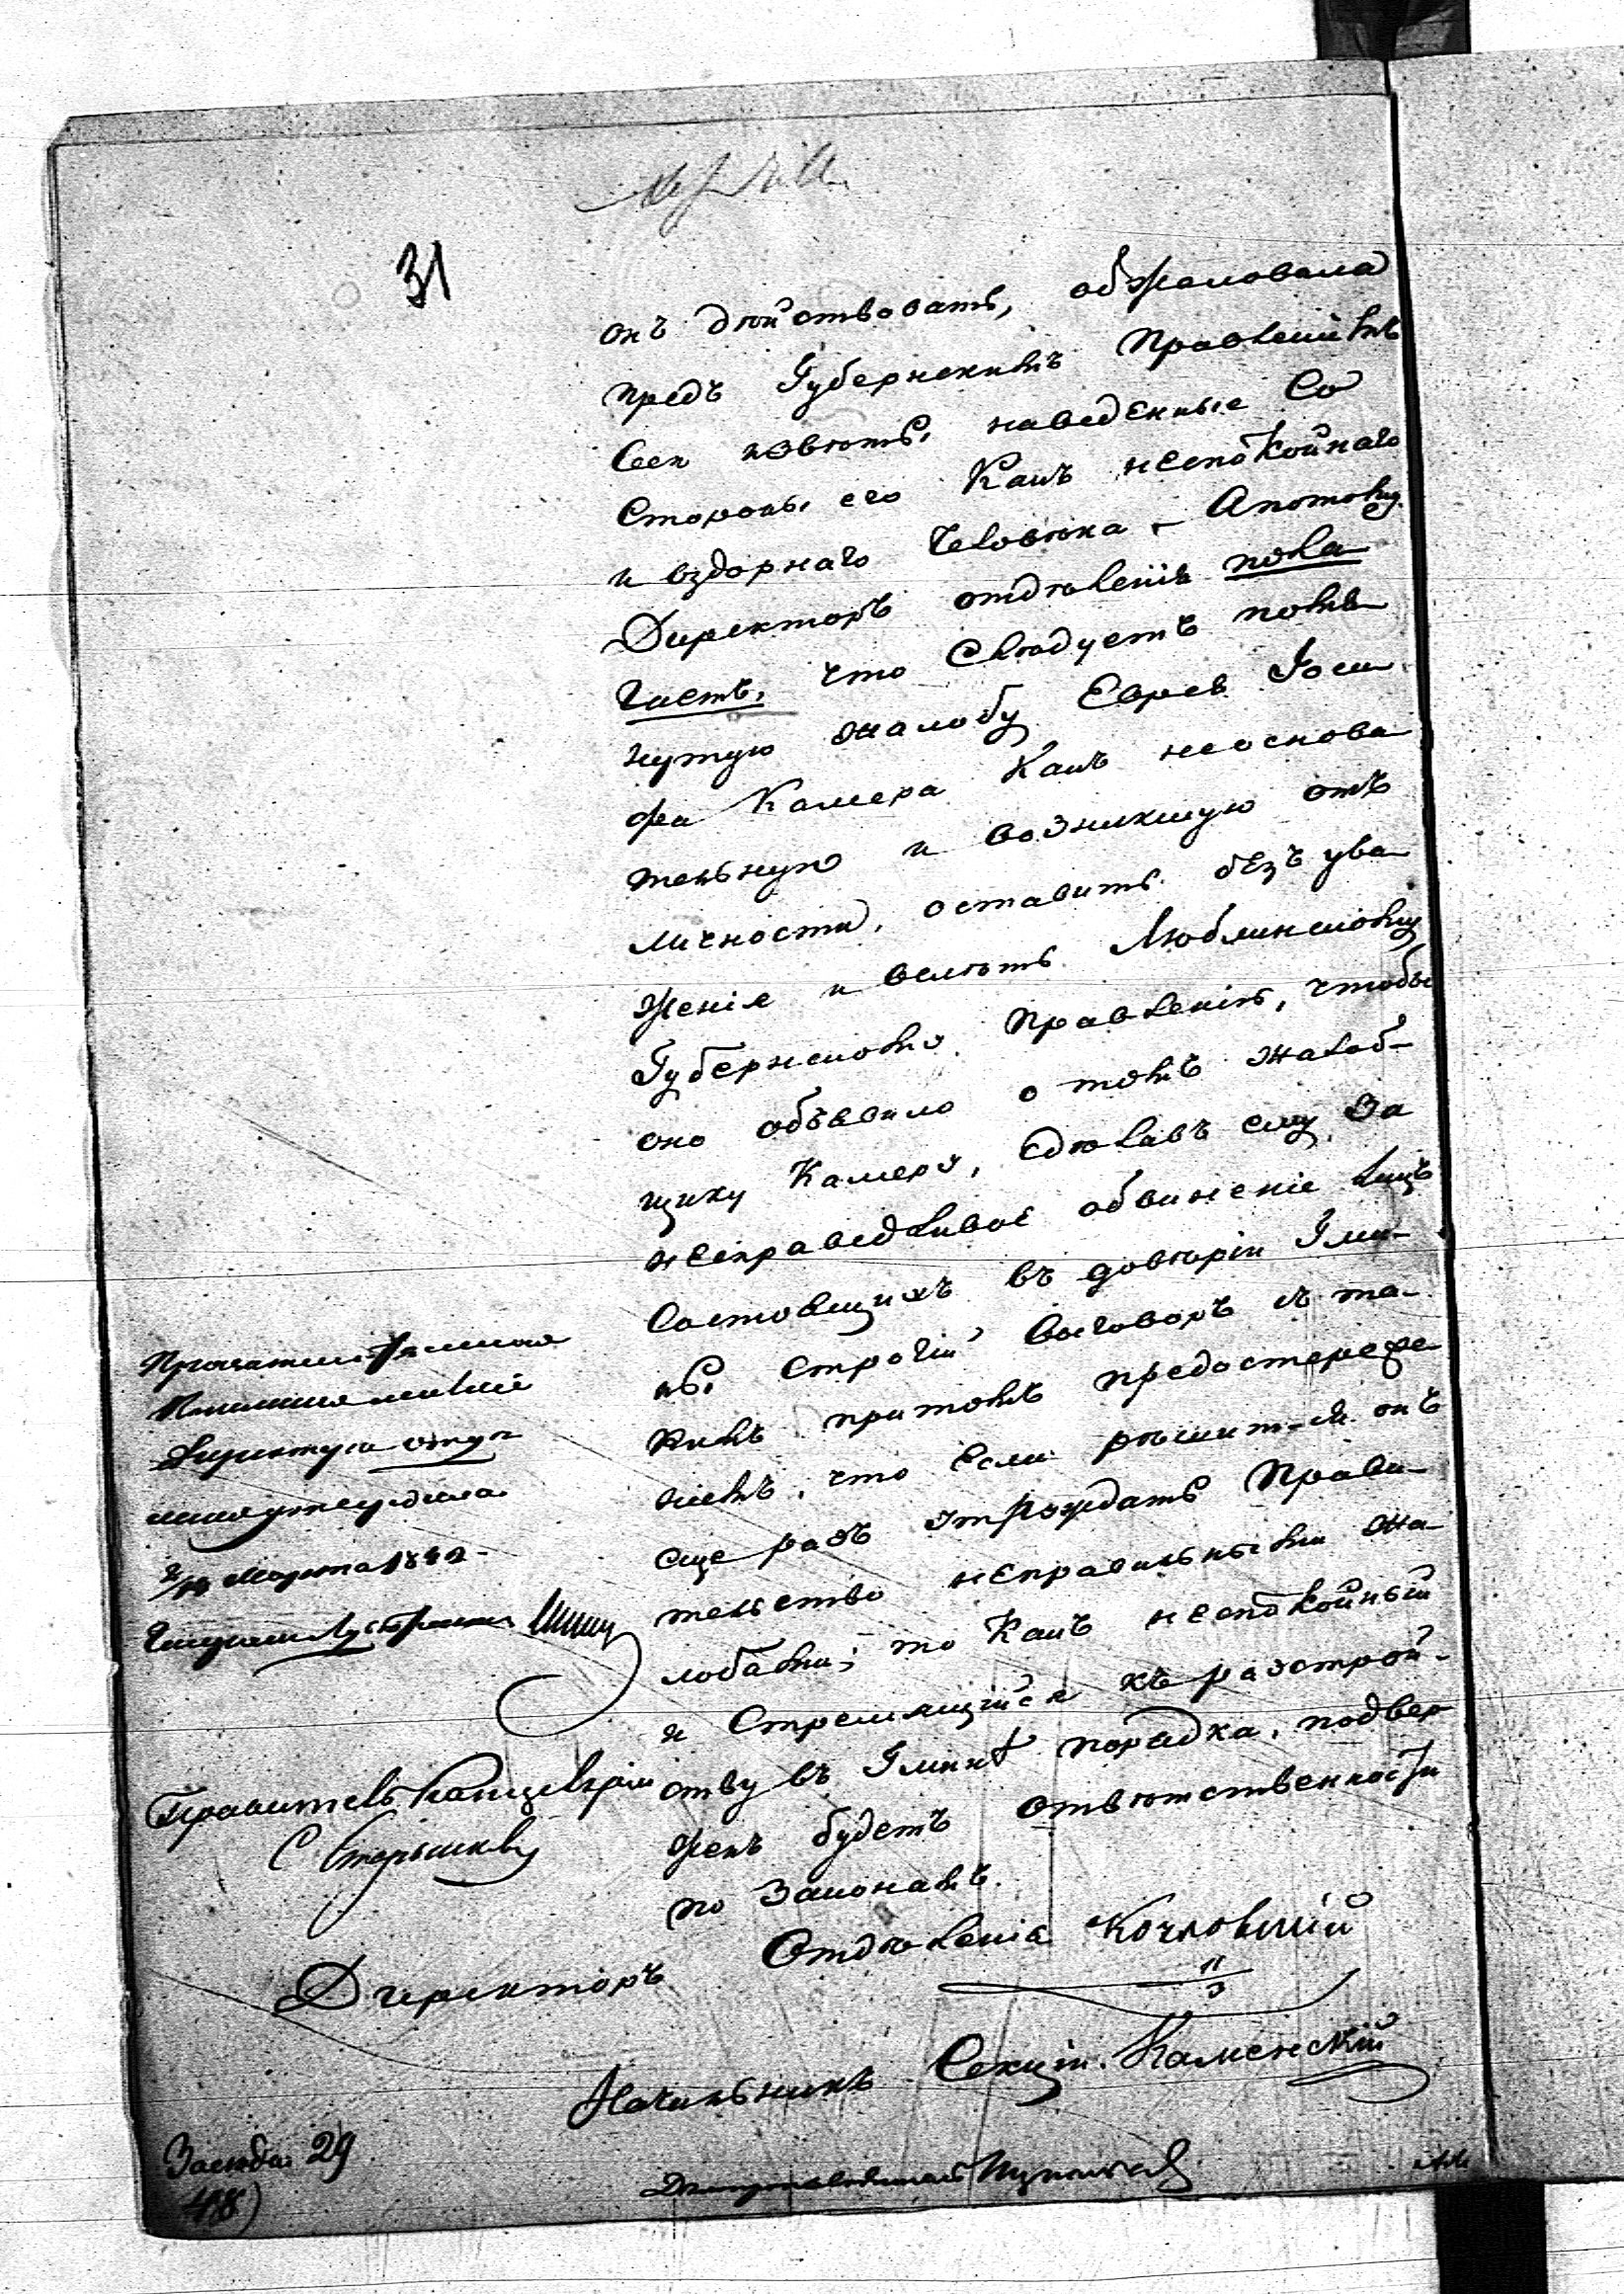 31
онъ действовать, обжаловала
предъ Губернскимъ Правленiемъ
наведенные со
стороны его какъ неспокойнаго
и вздорнаго человѣка. – А потому
Директоръ отдѣленiя пола
гаетъ, что слѣдуетъ помя
нутую жалобу Еврея Iоси
фа Камера какъ неоснова
тельную и возникшую отъ
личности, оставить безъ ува
женiя и велѣть Люблинскому
Губернскому Правленiю, чтобы
оно объявило о томъ жалоб-
щику Камеру, сдѣлавъ ему за
несправедливое обвиненiе лицъ
состоящихъ въ довѣрiи Гми-
ны строгiй выговоръ съ та-
кимъ притомъ предостереже
нiемъ, что если рѣшится онъ
еще разъ утруждать Прави-
тельство неправильными жа
лобами; то какъ неспокойный
и стремящiйся къ разстрой-
ству въ Гминѣ порядка, подвер
женъ будетъ отвѣтственности
по законамъ.
Директоръ Отдѣленiя
11
3
Начальникъ Секцiи. Каменскiй
Марта
Правитель Канцелярiи
29
48)